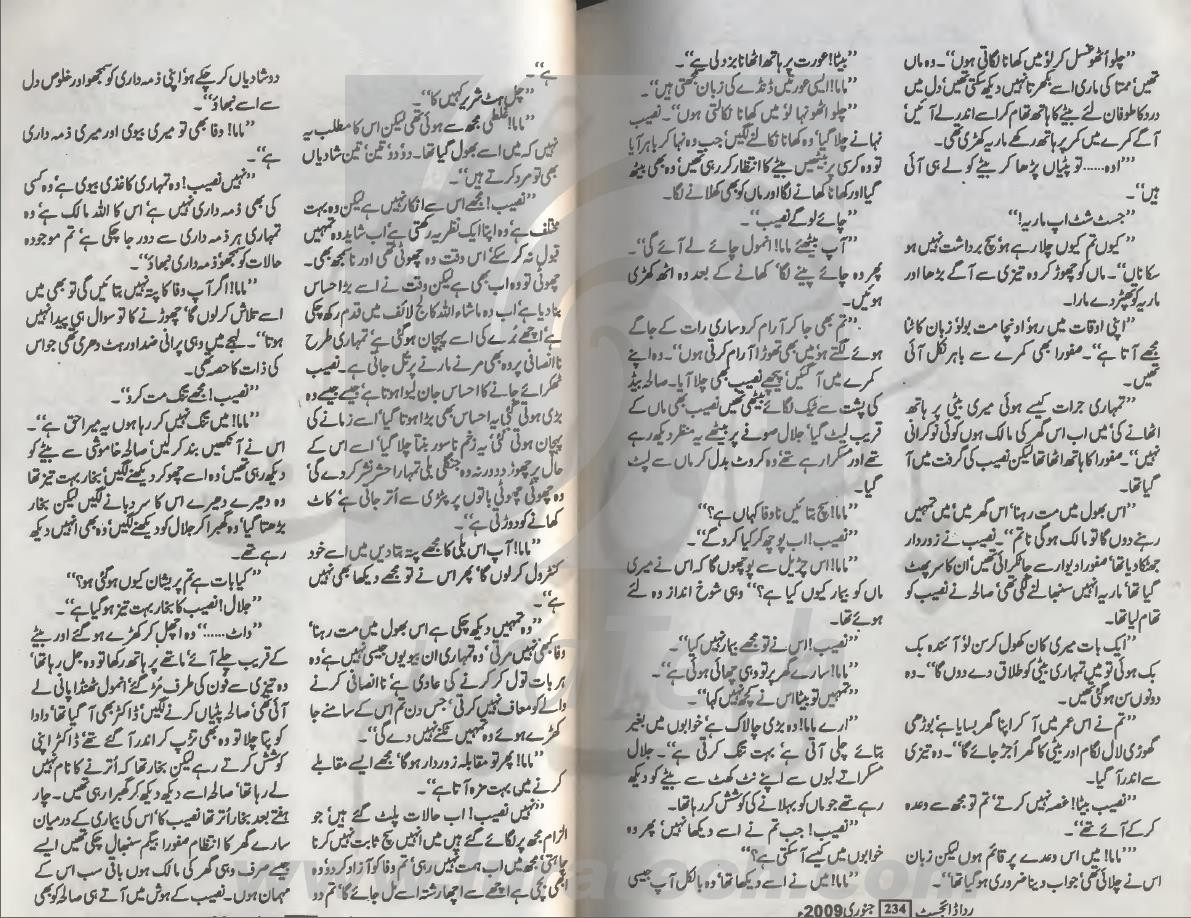 ”چلو اُٹھو غسل کر لو‘ میں کھانا لگاتی ہوں“۔ وہ ماں
تھیں‘ ممتا کی ماری اسے بکھرتا نہیں دیکھ سکتی تھیں‘ دل میں
درد کا طوفان لئے بیٹے کا ہاتھ تھام کر اسے اندر لے آئیں‘
آگے کمرے میں کمر پر ہاتھ رکھے ماریہ کھڑی تھی۔
”اوہ...... تو پٹیاں پڑھا کر بیٹے کو لے ہی آئی
ہیں“۔
”جسٹ شٹ اپ ماریہ!“
”کیوں تم کیوں چلا رہے ہو‘ سچ برداشت نہیں ہو
سکا ناں“۔ ماں کو چھوڑ کر وہ تیزی سے آگے بڑھا اور
ماریہ کو تھپڑ دے مارا۔
”اپنی اوقات میں رہو‘ اونچا مت بولو‘ زبان کاٹنا
مجھے آتا ہے“۔ صفورا بھی کمرے سے باہر نکل آئی
تھیں۔
”تمہاری جرات کیسے ہوئی میری بیٹی پر ہاتھ
اٹھانے کی‘ میں اب اس گھر کی مالک ہوں کوئی نوکرانی
نہیں“۔ صفورا کا ہاتھ اٹھا تھا لیکن نصیب کی گرفت میں آ
گیا تھا۔
”اس بھول میں مت رہنا‘ اس گھر میں‘ میں تمہیں
رہنے دوں گا تو مالک ہو گی نا تم“۔ نصیب نے زوردار
جھٹکا دیا تھا‘ صفورا دیوار سے جا ٹکرائی تھیں‘ اُن کا سر پھٹ
گیا تھا‘ ماریہ انہیں سنبھالنے لگی تھی‘ صالحہ نے نصیب کو
تھام لیا تھا۔
”ایک بات میری کان کھول کر سن لو‘ آئندہ بک
بک ہوئی تو میں تمہاری بیٹی کو طلاق دے دوں گا“۔ وہ
دونوں سن ہو گئی تھیں۔
”تم نے اس عمر میں آ کر اپنا گھر بسایا ہے بوڑھی
گھوڑی لال لگام اور بیٹی کا گھر اُجڑ جائے گا“۔ وہ تیزی
سے اندر آ گیا۔
”نصیب بیٹا! غصہ نہیں کرتے‘ تم تو مجھ سے وعدہ
کر کے آئے تھے“۔
”ماما! میں اس وعدے پر قائم ہوں لیکن زبان
اس نے چلائی تھی‘ جواب دینا ضروری ہو گیا تھا“۔
”بیٹا! عورت پر ہاتھ اٹھانا بزدلی ہے“۔
”ماما! ایسی عورتیں ڈنڈے کی زبان سمجھتی ہیں“۔
”چلو اٹھو نہا لو‘ میں کھانا نکالتی ہوں“۔ نصیب
نہانے چلا گیا‘ وہ کھانا نکالنے لگیں‘ جب وہ نہا کر باہر آیا
تو وہ کرسی پر بیٹھیں بیٹے کا انتظار کر رہی تھیں‘ وہ بھی بیٹھ
گیا اور کھانا کھانے لگا اور ماں کو بھی کھلانے لگا۔
”چائے لو گے نصیب“۔
”آپ بیٹھئے ماما! انمول چائے لے آئے گی“۔
پھر وہ چائے پینے لگا‘ کھانے کے بعد وہ اٹھ کھڑی
ہوئیں۔
”تم بھی جا کر آرام کرو‘ ساری رات کے جاگے
ہوئے لگتے ہو‘ میں بھی تھوڑا آرام کرتی ہوں“۔ وہ اپنے
کمرے میں آ گئیں‘ پیچھے نصیب بھی چلا آیا۔ صالحہ بیڈ
کی پشت سے ٹیک لگائے بیٹھی تھیں‘ نصیب بھی ماں کے
قریب لیٹ گیا‘ جلال صوفے پر بیٹھے یہ منظر دیکھ رہے
تھے اور مسکرا رہے تھے‘ وہ کروٹ بدل کر ماں سے لپٹ
گیا۔
”ماما! سچ بتائیں نا وفا کہاں ہے؟“
”نصیب! اب پوچھ کر کیا کرو گے“۔
”ماما! اس چڑیل سے پوچھوں گا کہ اس نے میری
ماں کو بیمار کیوں کیا ہے؟“ وہی شوخ انداز وہ لئے
ہوئے تھا۔
”نصیب! اس نے تو مجھے بیمار نہیں کیا“۔
”ماما! سارے گھر پر تو وہی چھائی ہوئی ہے“۔
”تمہیں تو بیٹا اس نے کچھ نہیں کہا“۔
”ارے ماما! وہ بڑی چالاک ہے‘ خوابوں میں بغیر
بتائے چلی آتی ہے‘ بہت تنگ کرتی ہے“۔ جلال
مسکراتے لبوں سے اپنے نٹ کھٹ سے بیٹے کو دیکھ
رہے تھے جو ماں کو بہلانے کی کوشش کر رہا تھا۔
”نصیب! جب تم نے اسے دیکھا نہیں‘ پھر وہ
خوابوں میں کیسے آ سکتی ہے؟“
”ماما! میں نے اسے دیکھا تھا‘ وہ بالکل آپ جیسی
ردا ڈائجسٹ 234 جنوری 2009ء
ہے“۔
”چل ہٹ شریر کہیں کا“۔
”ماما! غلطی مجھ سے ہوئی تھی لیکن اس کا مطلب یہ
نہیں کہ میں اسے بھول گیا تھا۔ دو‘ دو‘ تین‘ تین شادیاں
بھی تو مرد کرتے ہیں“۔
”نصیب! مجھے اس سے انکار نہیں ہے لیکن وہ بہت
مختلف ہے‘ وہ اپنا ایک نظریہ رکھتی ہے‘ اب شاید وہ تمہیں
قبول نہ کر سکے‘ اس وقت وہ چھوٹی تھی اور نا سمجھ بھی۔
چھوٹی تو وہ اب بھی ہے لیکن وقت نے اسے بڑا حساس
بنا دیا ہے‘ اب وہ ماشاء اللہ کالج لائف میں قدم رکھ چکی
ہے‘ اچھے بُرے کی اسے پہچان ہو گئی ہے‘ تمہاری طرح
ناانصافی پر وہ بھی مرنے مارنے پر تل جاتی ہے۔ نصیب
ٹھکرائے جانے کا احساس جان لیوا ہوتا ہے‘ جیسے جیسے وہ
بڑی ہوتی گئی یہ احساس بھی بڑا ہوتا گیا‘ اسے زمانے کی
پہچان ہوتی گئی‘ یہ زخم ناسور بنتا چلا گیا‘ اسے اس کے
حال پر چھوڑ دو ورنہ وہ جنگلی بلی تمہارا حشر نشر کر دے گی‘
وہ چھوٹی چھوٹی باتوں پر پٹڑی سے اُتر جاتی ہے‘ کاٹ
کھانے کو دوڑتی ہے“۔
”ماما! آپ اس بلی کا مجھے پتہ بتا دیں میں اسے خود
کنٹرول کر لوں گا‘ پھر اس نے تو مجھے دیکھا بھی نہیں
ہے“۔
”وہ تمہیں دیکھ چکی ہے اس بھول میں مت رہنا‘
وفا کبھی نہیں مرتی‘ وہ تمہاری ان بیویوں جیسی نہیں ہے‘ وہ
ہر بات تول کر کرنے کی عادی ہے‘ ناانصافی کرنے
والے کو معاف نہیں کرتی‘ جس دن تم اس کے سامنے جا
کھڑے ہوئے وہ تمہیں ٹکنے نہیں دے گی“۔
”ماما! پھر تو مقابلہ زوردار ہو گا‘ مجھے ایسے مقابلے
کرنے میں بہت مزہ آتا ہے“۔
”نہیں نصیب! اب حالات پلٹ گئے ہیں‘ جو
الزام مجھ پر لگائے گئے ہیں میں انہیں سچ ثابت نہیں کرنا
چاہتی‘ مجھ میں اب ہمت نہیں رہی‘ تم وفا کو آزاد کر دو‘ وہ
اچھی بچی ہے اچھے سے اچھا رشتہ اسے مل جائے گا‘ تم دو
دو شادیاں کر چکے ہو‘ اپنی ذمہ داری کو سمجھو اور خلوص دل
سے اسے نبھاؤ“۔
”ماما! وفا بھی تو میری بیوی اور میری ذمہ داری
ہے“۔
”نہیں نصیب! وہ تمہاری کاغذی بیوی ہے‘ وہ کسی
کی بھی ذمہ داری نہیں ہے‘ اس کا اللہ مالک ہے‘ وہ
تمہاری ہر ذمہ داری سے دور جا چکی ہے‘ تم موجودہ
حالات کو سمجھو‘ ذمہ داری نبھاؤ“۔
”ماما! اگر آپ وفا کا پتہ نہیں بتائیں گی تو بھی میں
اسے تلاش کر لوں گا‘ چھوڑنے کا تو سوال ہی پیدا نہیں
ہوتا“۔ لہجے میں وہی پرانی ضد اور ہٹ دھرمی تھی جو اس
کی ذات کا حصہ تھی۔
”نصیب! مجھے تنگ مت کرو“۔
”ماما! میں تنگ نہیں کر رہا ہوں یہ میرا حق ہے“۔
اس نے آنکھیں بند کر لیں‘ صالحہ خاموشی سے بیٹے کو
دیکھ رہی تھیں‘ وہ اسے چھو کر دیکھنے لگیں‘ بخار بہت تیز تھا
وہ دھیرے دھیرے اس کا سر دبانے لگیں لیکن بخار
بڑھتا گیا‘ وہ گھبرا کر جلال کو دیکھنے لگیں‘ وہ بھی انہیں دیکھ
رہے تھے۔
”کیا بات ہے تم پریشان کیوں ہو گئی ہو؟“
”جلال! نصیب کا بخار بہت تیز ہو گیا ہے“۔
”واٹ......“ وہ اچھل کر کھڑے ہو گئے اور بیٹے
کے قریب چلے آئے‘ ماتھے پر ہاتھ رکھا تو وہ جل رہا تھا‘
وہ تیزی سے فون کی طرف مُڑ گئے‘ انمول ٹھنڈا پانی لے
آئی تھی‘ صالحہ پٹیاں کرنے لگیں‘ ڈاکٹر بھی آ گیا تھا‘ دادا
کو پتا چلا تو وہ بھی تڑپ کر اندر آ گئے تھے‘ ڈاکٹر اپنی
کوشش کرتے رہے لیکن بخار تھا کہ اُترنے کا نام نہیں
لے رہا تھا‘ صالحہ اسے دیکھ دیکھ کر گھبرا رہی تھیں۔ چار
ہفتے بعد بخار اُترا تھا نصیب کا‘ اس کی بیماری کے درمیان
سارے گھر کا انتظام صفورا بیگم سنبھال چکی تھیں‘ ایسے
جیسے صرف وہی گھر کی مالک ہوں باقی سب اس کے
مہمان ہوں۔ نصیب کے ہوش میں آتے ہی صالحہ کو بھی